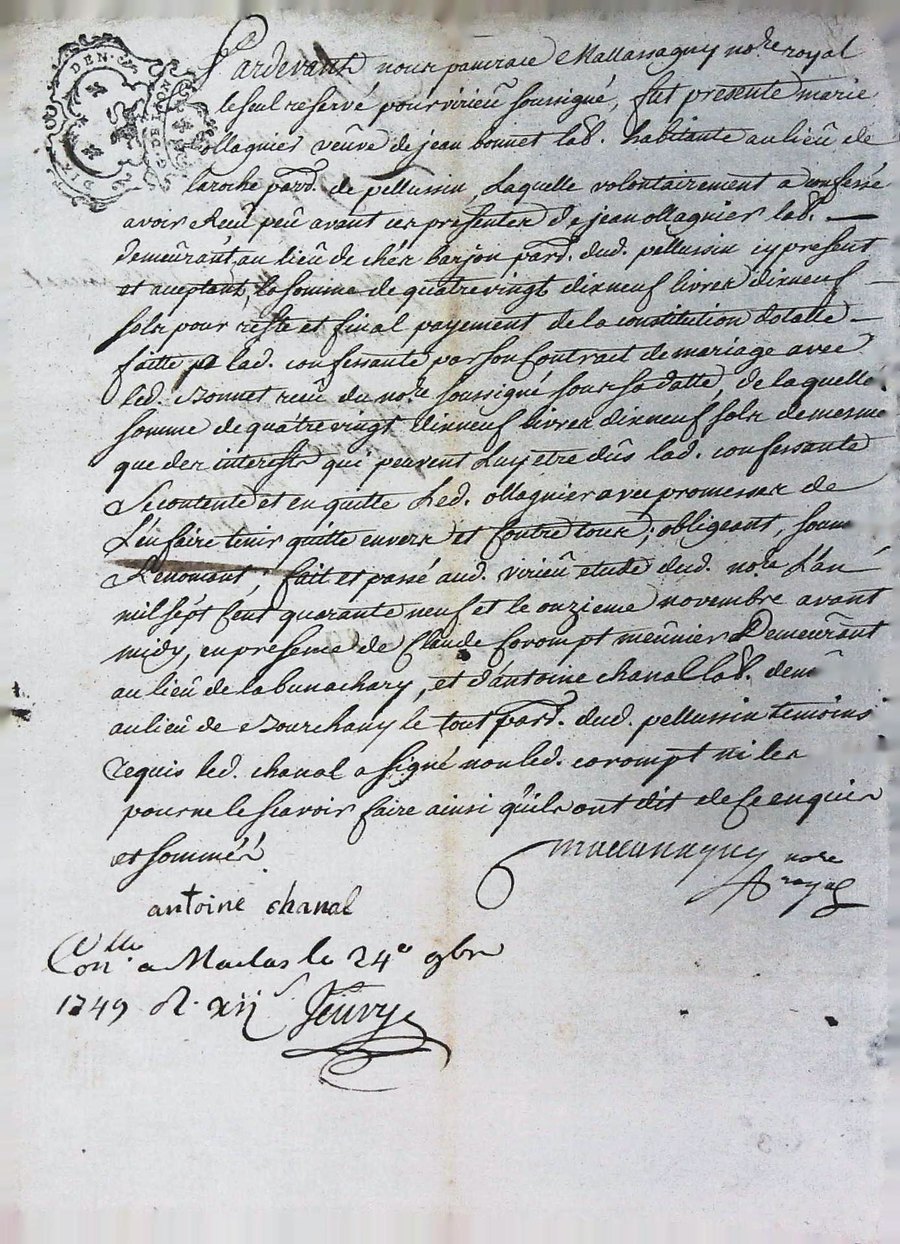 DEN
GEN. DE LYON
Pardevant nous pancrace Mallassagny no.re royal
le seul reservé pour virieu soussigné, fut presente marie
ollagnier veûve de jean bonnet lab. habitante au lieû de
laroche parr. de pellussin, Laquelle volontairement a confessé
avoir Receû peû avant ces presentes de jean ollagnier lab.
demeûrant au lieû de chés barjon parr. dud. pellussin cy present
et aceptant, la somme de quatre vingt dixneuf livres dixneuf
sols pour reste et final payement de la constitution dotalle
faitte a lad. confessante par son Contrait de mariage avec
led. Bonnet receû du no.re soussigné sous sa datte, de laquelle
somme de quatre vingt dixneuf livres dixneuf sols de mesme
que des interests qui peuvent Luy etre dûs lad. confessante
Se contente et en quitte Led. ollagnier avec promesses de
L'en faire tenir quitte envers et Contre tous; obligeant, soum
Renonçant fait et passé aud. virieû etude dud. no.re L'an
mil sept Cent quarante neuf et le onzieme novembre avant
midy, en presence de Claude Corompt meûnier Demeûrant
au lieû de la bunachary, et d'antoine chanal lab. dem
au lieû de Bourchany le tout parr. dud. pellussin temoins
requis led. chanal a signé non led. corompt ni les
pour ne le scavoir faire ainsi qu'ils ont dit de ce enquis
et sommés
mallassagny no.re royal
antoine chanal
Con.llé a Maclas le 24e 9bre
1749 R. xij s